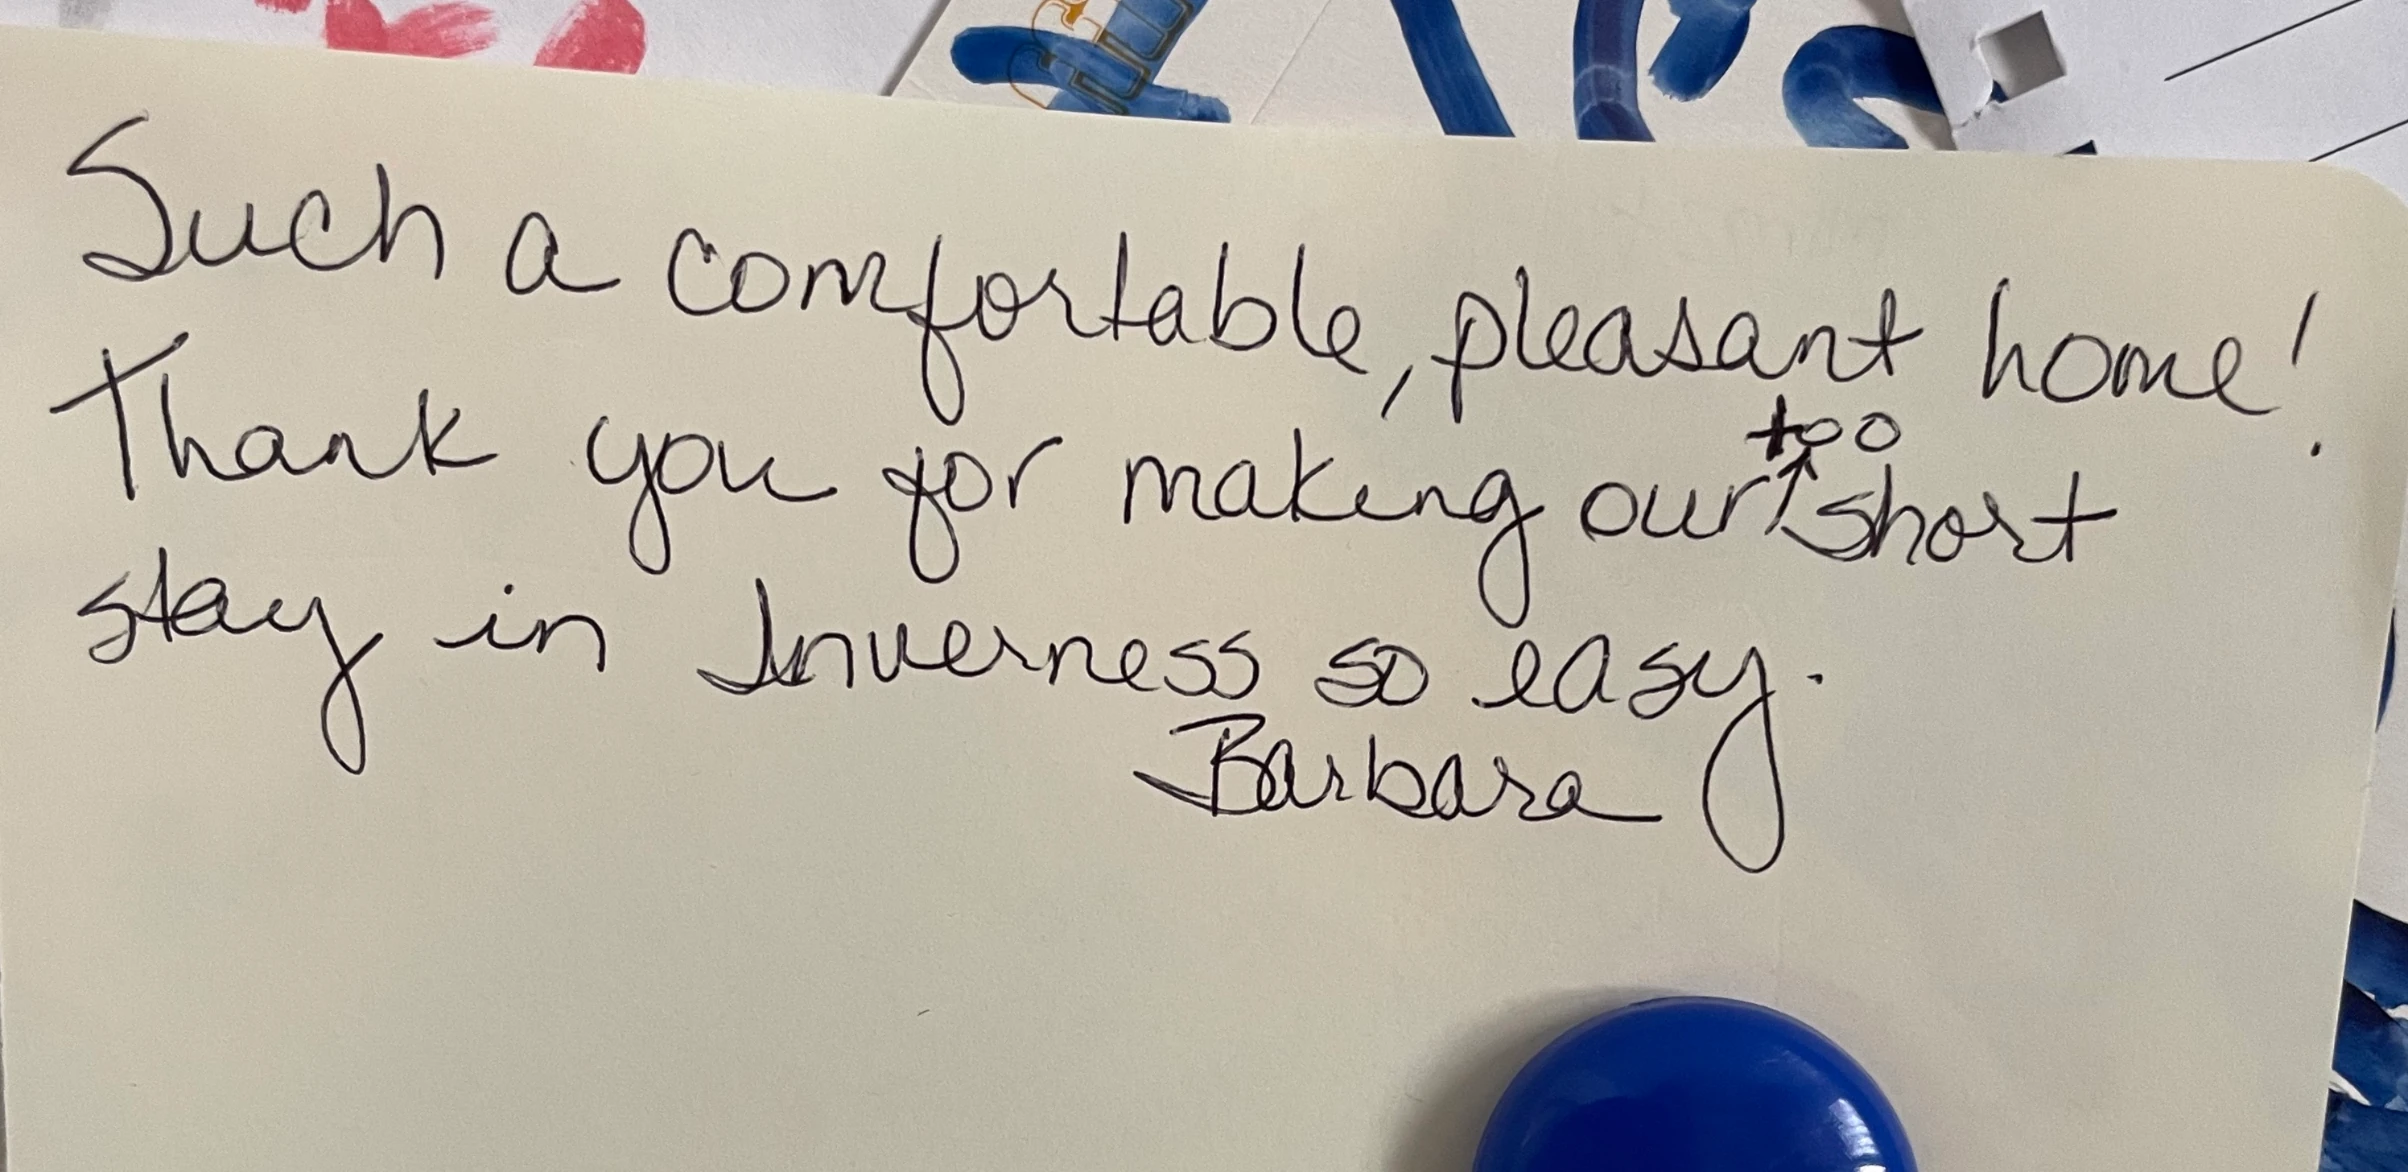 Such a comfortable, pleasant home!
Thank you for making our too short
stay in Inverness so easy.
Barbara